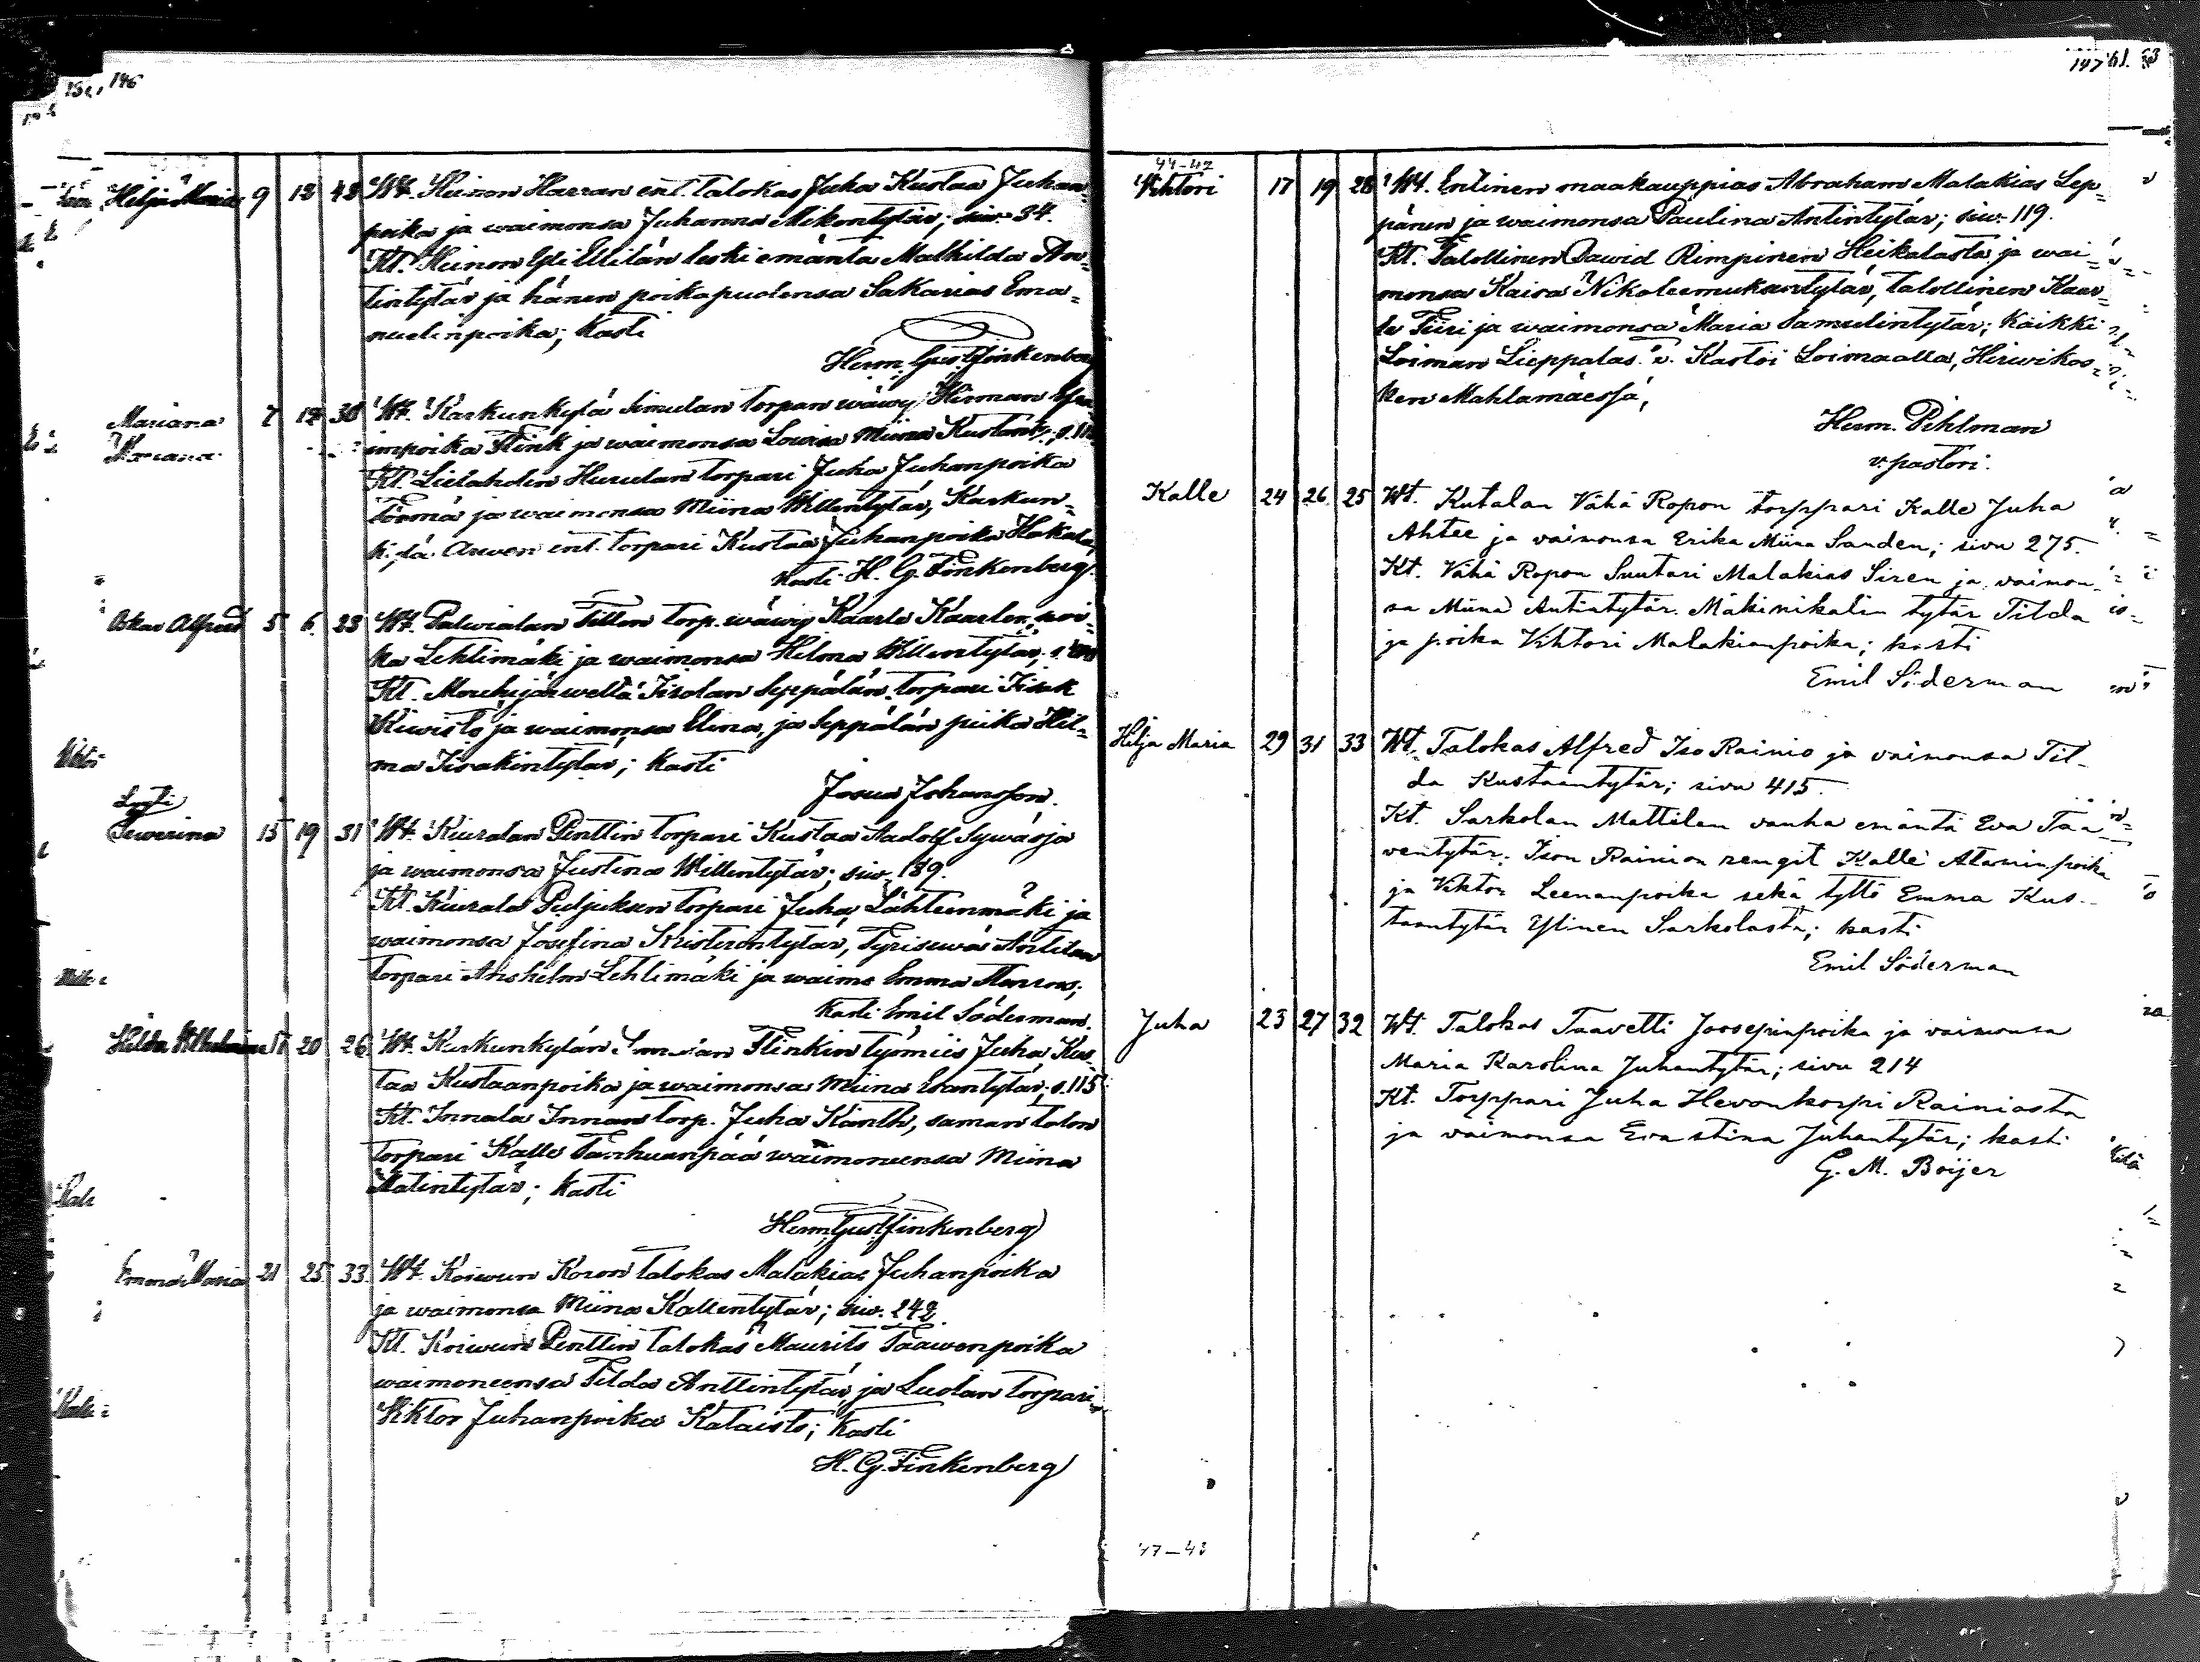 146
Hilja Maria 9 12 42 Wt. Heinon Harran ent. talokas Juha Kustaa Juhan-
poika ja waimonsa Juhanna Mikontytär; siw. 34.
Kt. Heinon Yli leski emäntä Mathilda An-
tintytär ja hänen poikapuolensa Sakarias Ema-
nuelinpoika; kasti
Herm. Gust. Finkenberg
Mariana 7 12 30 Wt. Karkunkylä Simulan torpan wäwy Herman
poika Flink ja waimonsa Lowisa Miina
Mariana
Kt. Lielahden Hurulan torpari Juha Juhanpoika
Törmä ja waimonsa Miina Willentytär, Karkun-
k;lä Arwen ent. torpari Kustaa Juhanpoika Hakala,
kasti H. G. Finkenberg.
Oskar Alfred 5 6 23 Wt. Palwialan Tillin torp. wäwy Kaarle Kaarlen poi-
ka Lehtimäki ja waimonsa Helma Willentytär;
Kt. Mouhijärwellä Iisolan Seppälän torpari Iisak
Kiwistö ja waimonsa Elina, ja Seppälän piika Hil-
ma Iisakintytär; kasti
Josua Johansson.
Lyyti
Sewerina 15 19 31 Wt. Kiuralan Penttin torpari Kustaa Aadolf Sywäoja
ja waimonsa Justina Willentytär; siw. 189.
Kt. Kiurala Puljuksen torpari Juha Lähteenmäki ja
waimonsa Josefina Kristerintytär, Tyrisewä Anttilan
torpari Anshelm Lehtimäki ja waimo Emma
kasti Emil Söderman.
Hilda Wilhelmina 17 20 26 Wt. Karkunkylän Simulan Flinkin työmiis Juha Kus-
taa Kustaanpoika ja waimonsa Miina Esantytär; s. 115
Kt. Innala Innan torp. Juha Känth, saman talon
torpari Kalle Tanhuanpää waimoneensa Miina
Matintytär; kasti
Herm. Gust. Finkenberg
Emma Maria 21 25 33 Wt. Koiwun Koron talokas Malakias Juhanpoika
ja waimonsa Miina Kallentytär; siw. 242.
Kt. Koiwun Penttin talokas Maurits Taawenpoika
waimoneensa Tilda Anttintytär ja Luolan torpari
Wiktor Juhanpoika Kataisto; kasti
H. G. Finkenberg
147
44-42
Vihtori 17 19 28 Wt. Entinen maakauppias Abraham Malakias Lep-
pänen ja waimonsa Paulina Antintytär; siw. 119.
Kt. Talollinen Dawid Rimpinen Heikolasta ja wai-
monsa Kaisa Nikoteemuksentytär, talollinen Kaar-
lo Tiiri ja waimonsa Maria Samulintytär; kaikki
Loiman Lieppalas. v. Kastoi Loimaalla, Hirwikos-
ken Mahlamäessä,
Herm. Pihlman
v. pastori.
Kalle 24 26 25 Wt. Kutalan Vähä Ropon torppari Kalle Juha
Ahtee ja vaimonsa Erika Miina Sanden; sivu 275.
Kt. Vähä Ropon Suutari Malakias Siren ja vaimon-
sa Miina Antintytär. Mäkinikalin tytär Tilda
ja poika Vihtori Malakianpoika; kasti
Emil Söderman
Hilja Maria 29 31 33 Wt. Talokas Alfred Iso Rainio ja vaimonsa Til-
da Kustaantytär; sivu 415.
Kt. Sarkolan Mattilan vanha emäntä Eva Taa-
ventytär; Ison Rainion rengit Kalle Ataminpoika
ja Viktor Leenanpoika sekä tyttö Emma Kus-
taantytär Ylinen Sarkolasta; kasti
Emil Söderman
Juha 23 27 32 Wt. Talokas Taavetti Joosepinpoika ja vaimonsa
Maria Karolina Juhantytär; sivu 214
Kt. Torppari Juha Hevonkorpi Rainiosta
ja vaimonsa Eva stina Juhantytär; kasti
G. M. Boijer
47-43